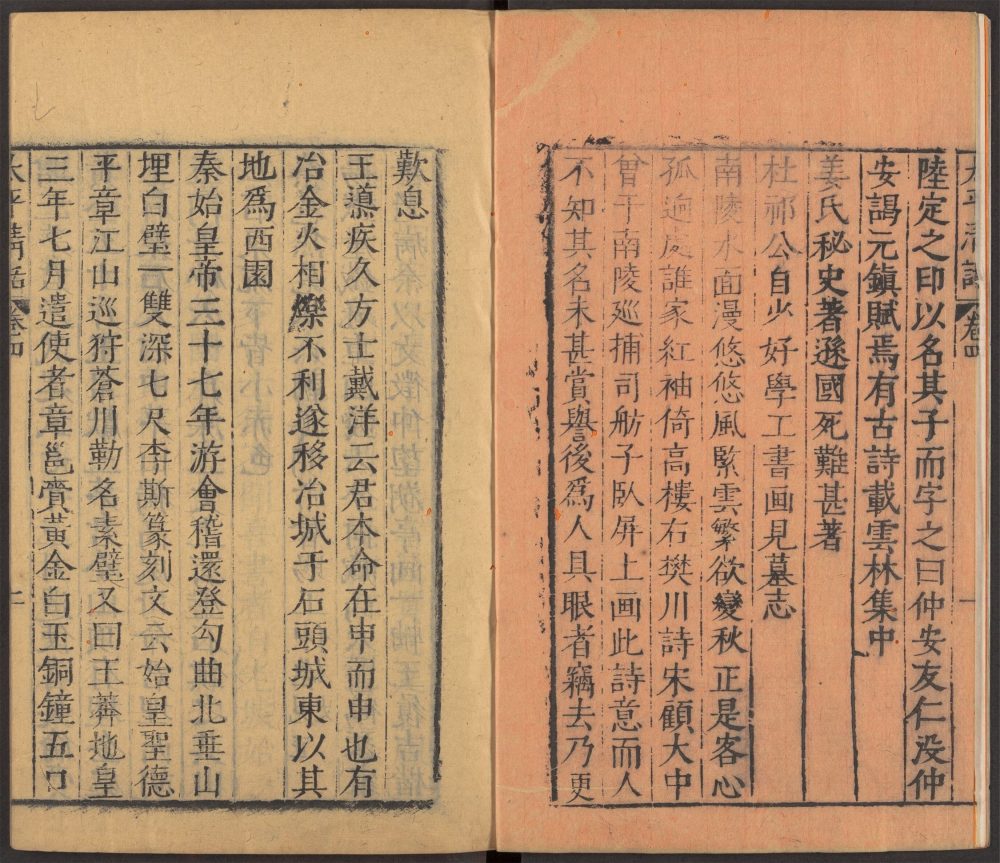 太平清話 卷四 一
陸定之印以名其子而字之曰仲安友仁没仲
安謁元鎮賦焉有古詩載雲林集中
姜氏秘史著遜國死難甚著
杜祁公自少好學工書画見墓志
南陵水面漫悠悠風緊雲繁欲變秋正是客心
孤逈處誰家紅袖倚高樓右樊川詩宋顧大中
曾于南陵廵捕司舫子臥屏上画此詩意而人
不知其名未甚賞譽後爲人具眼者竊去乃更
歎息
王導疾久方士戴洋云君本命在申而申也有
冶金火相爍不利遂移冶城于石頭城東以其
地爲西園
秦始皇帝三十七年游會稽還登勾曲北垂山
埋白璧一雙深七尺李斯篆刻文云始皇聖德
平章江山巡狩蒼川勒名素璧又曰王莽地皇
三年七月遣使者章邕賫黃金白玉銅鐘五口
太平清話 卷四 二